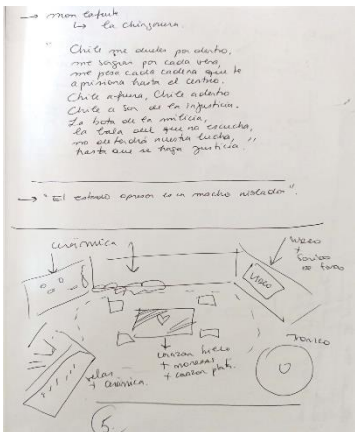 → mon laferte
↳ la chinganera.
" Chile me dueles por dentro,
me sangras por cada vena,
me pesa cada cadena que te
aprisiona hasta el centro.
Chile afuera, Chile adentro
Chile a son de la injusticia.
La bota de la milicia,
la bala del que no escucha,
no detendrá nuestra lucha,
hasta que se haga justicia. "
→ "El estado opresor es un macho violador".
cerámica
video
+
sonido
de fondo
video
corazon hielo
+ moneras
+ corazon plata.
velas
+ cerámica.
5.